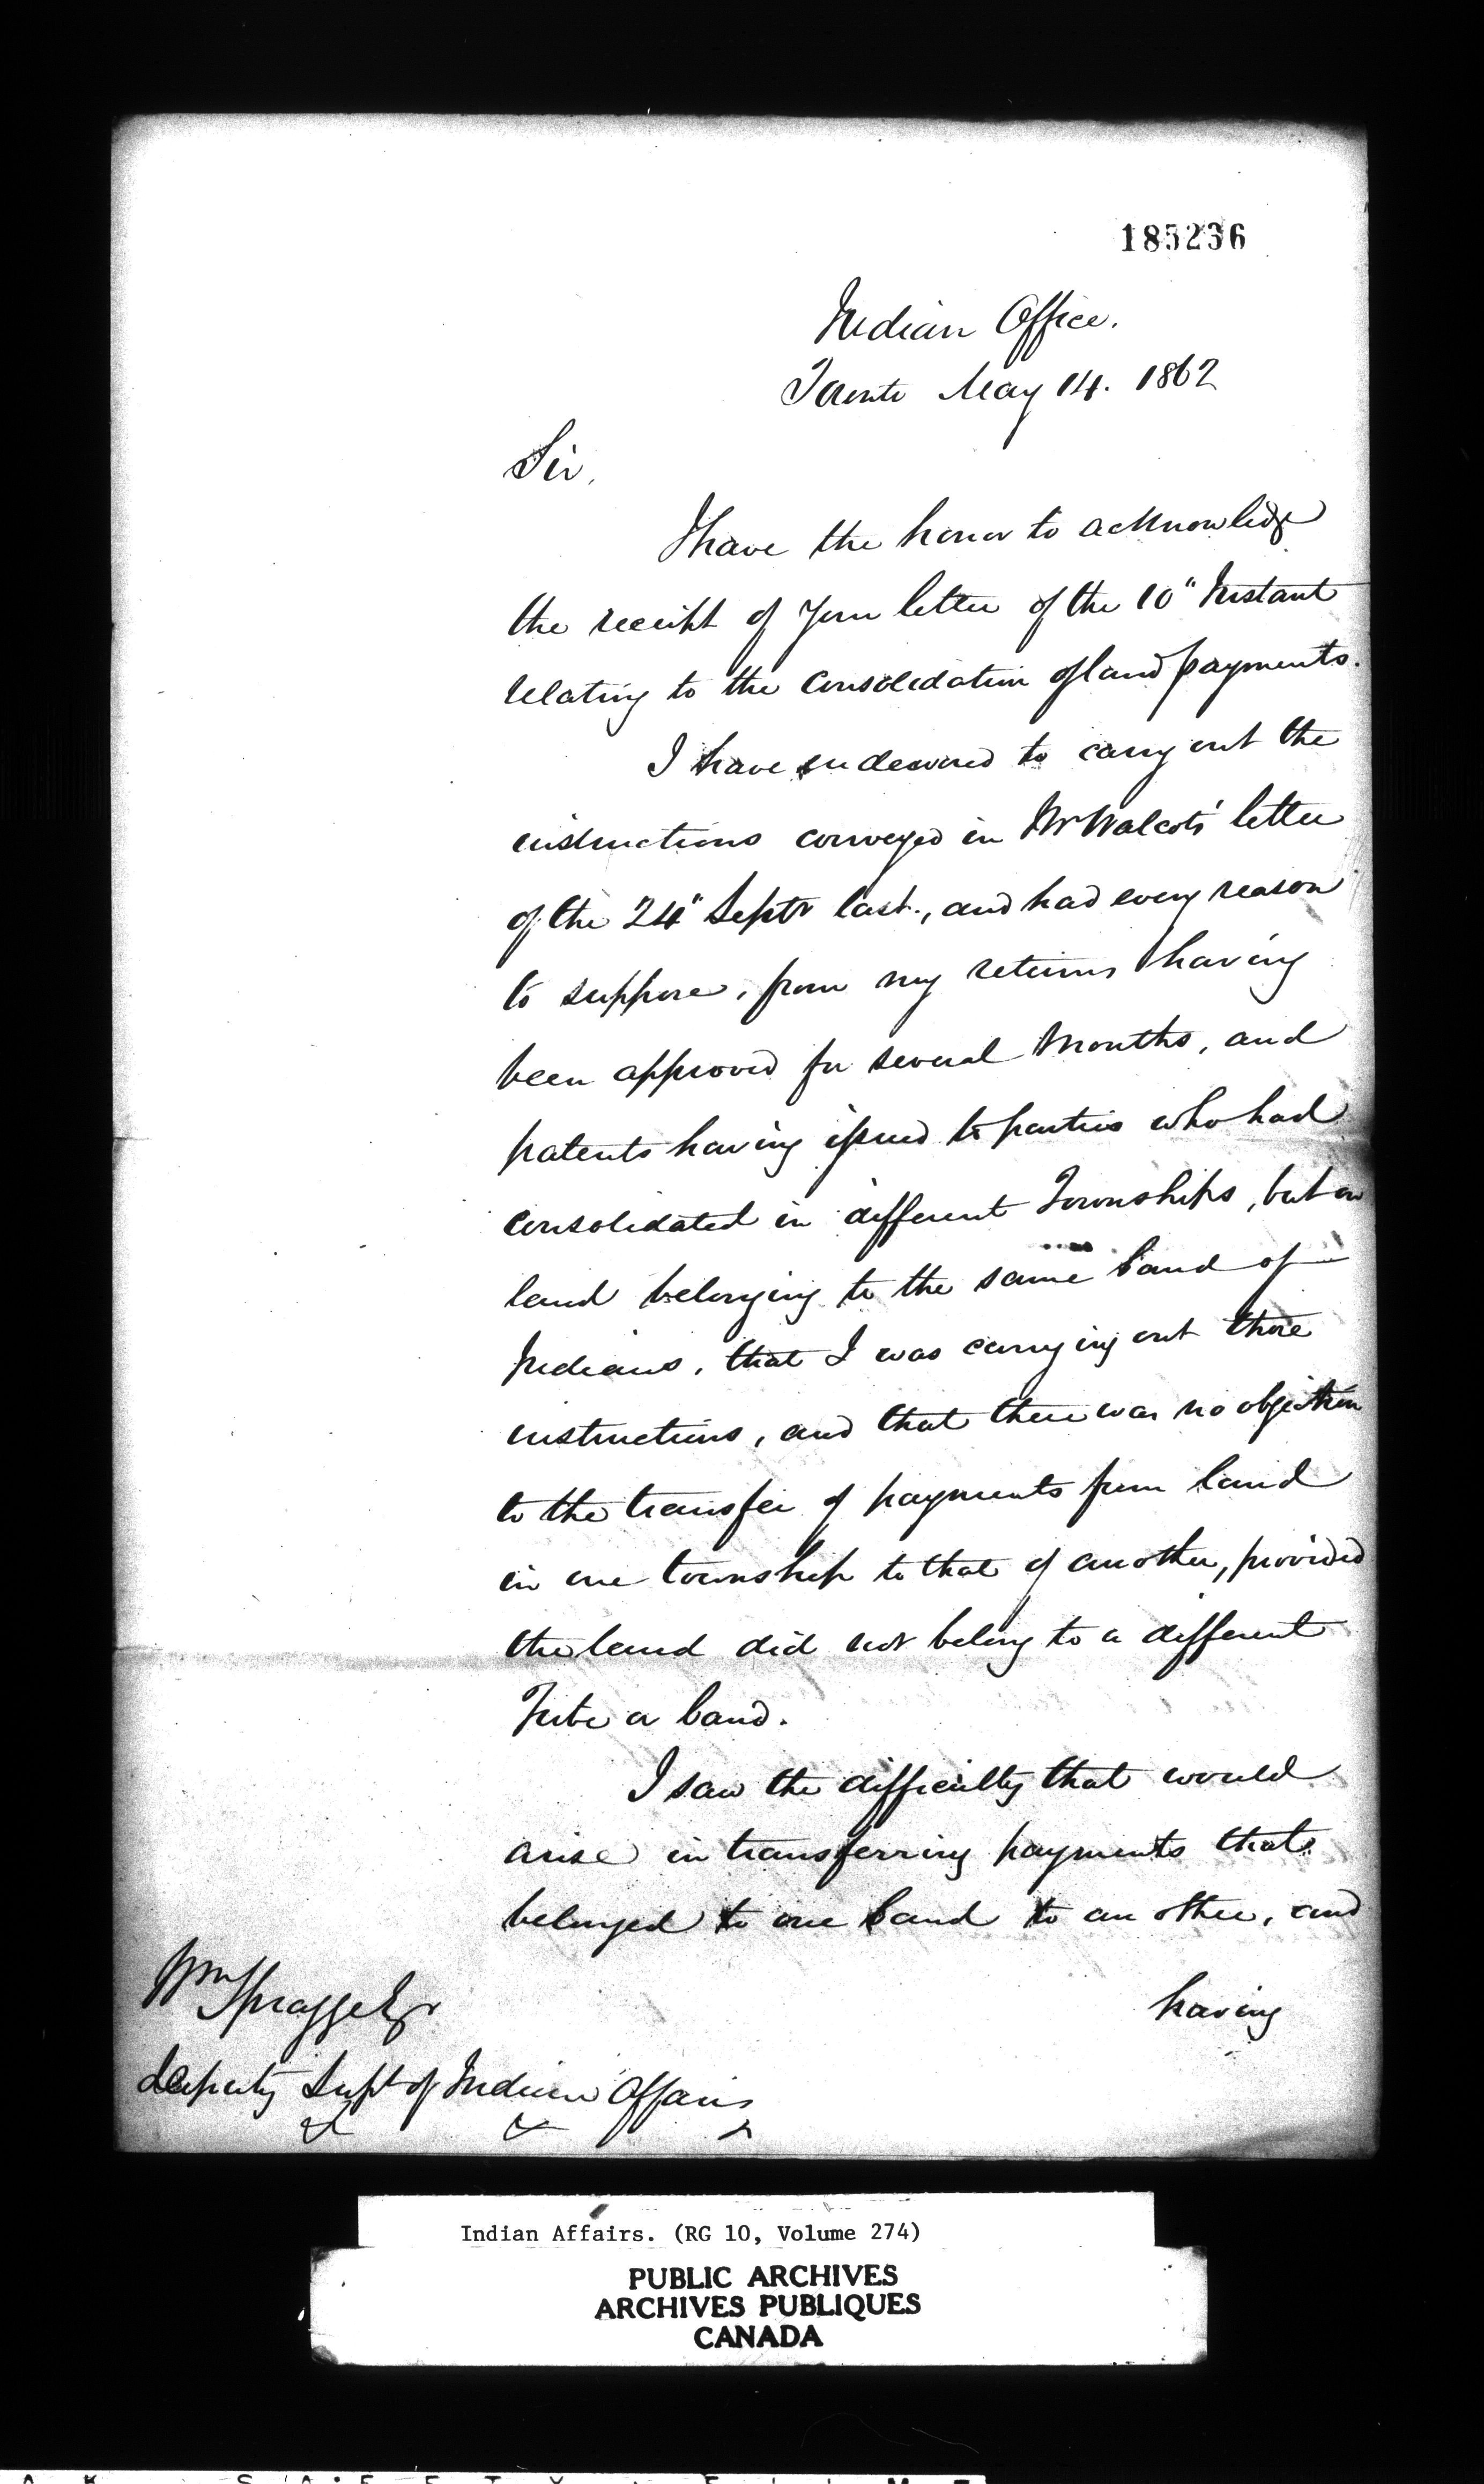 185236
Indian Office.
Toronto May 14. 1862
Sir,
I have the honor to acknowledge
the receipt of your letter of the 10" Instant
relating to the consolidation of land payments.
I have endeavored to carry out the
instructions conveyed in Mr Walcots' letter
of the 24" Septr last., and had every reason
to suppose, from my returns having
been approved for several months, and
patents having issued to parties who had
consolidated in different Townships, but on
land belonging to the same band of
Indians, that I was carrying out those
instructions, and that there was no objection
to the transfer of payments from land
in one township to that of another, provided
the land did not belong to a different
Tribe or band.
I saw the difficulty that would
arise in transferring payments that
belonged to one band to an other, and
having
Wm Spragge Esqr
Deputy Supt of Indian Affairs
& & &
Indian Affairs. (RG 10, Volume 274)
PUBLIC ARCHIVES
ARCHIVES PUBLIQUES
CANADA